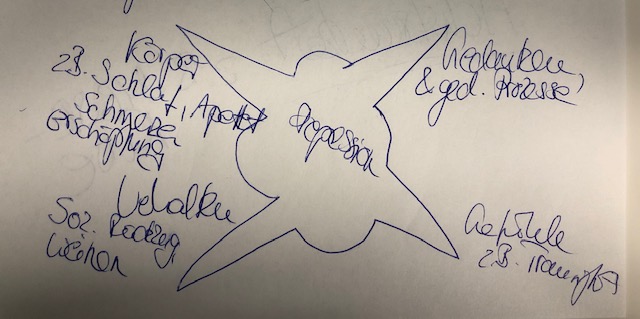 Körper
z.B. Schlaf, Appetit
Schmerzen
Erschöpfung
Gedanken
& ged. Prozesse
Depression
Verhalten
Soz. Rückzug
Weinen
Gefühle
z.B. Traurigkeit